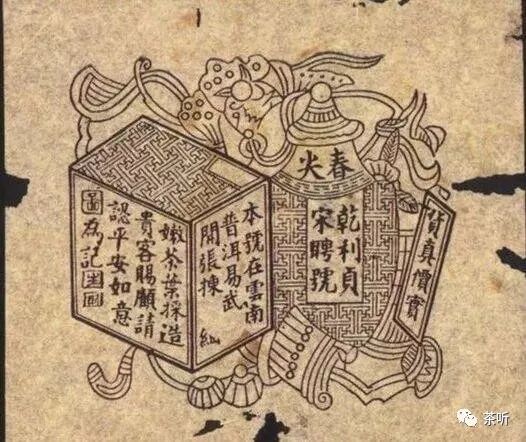 春尖
乾利貞
宋聘號
貨真價實
本號在雲南
普洱易武
開張揀
嫩茶葉採造
貴客賜顧請
認平安如意
圖為記
茶听